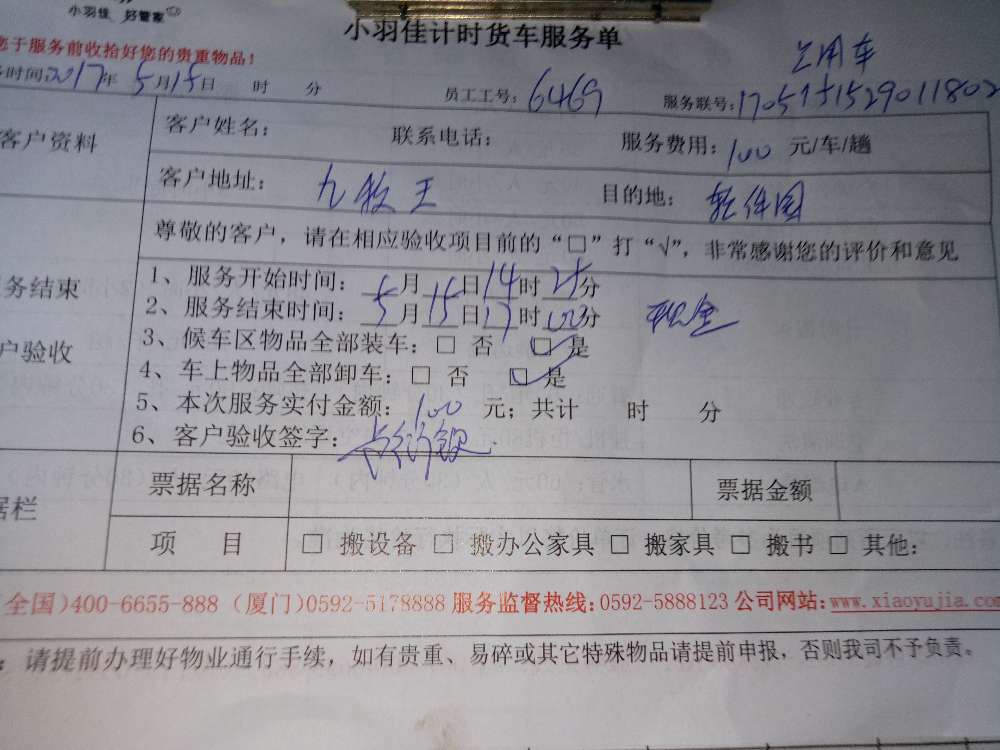 小羽佳 好管家
小羽佳计时货车服务单
您于服务前收拾好您的贵重物品!
公用车
务时间:2017年 5月15日 时 分 员工工号: 6469 服务联号:
客户资料 客户姓名: 联系电话: 服务费用: 100 元/车/趟
客户地址: 九牧王 目的地: 软件园
尊敬的客户，请在相应验收项目前的“□”打“√”，非常感谢您的评价和意见
务结束
户验收
1、服务开始时间: 5月15日14时25分
2、服务结束时间: 5月15日17时00分 现金
3、候车区物品全部装车: □ 否 ☑ 是
4、车上物品全部卸车: □ 否 ☑ 是
5、本次服务实付金额: 100 元; 共计 时 分
6、客户验收签字:
据栏 票据名称 票据金额
项 目 □ 搬设备 □ 搬办公家具 □ 搬家具 □ 搬书 □ 其他:
(全国)400-6655-888 (厦门)0592-5178888 服务监督热线:0592-5888123 公司网站:www.xiaoyujia.com
: 请提前办理好物业通行手续，如有贵重、易碎或其它特殊物品请提前申报，否则我司不予负责。